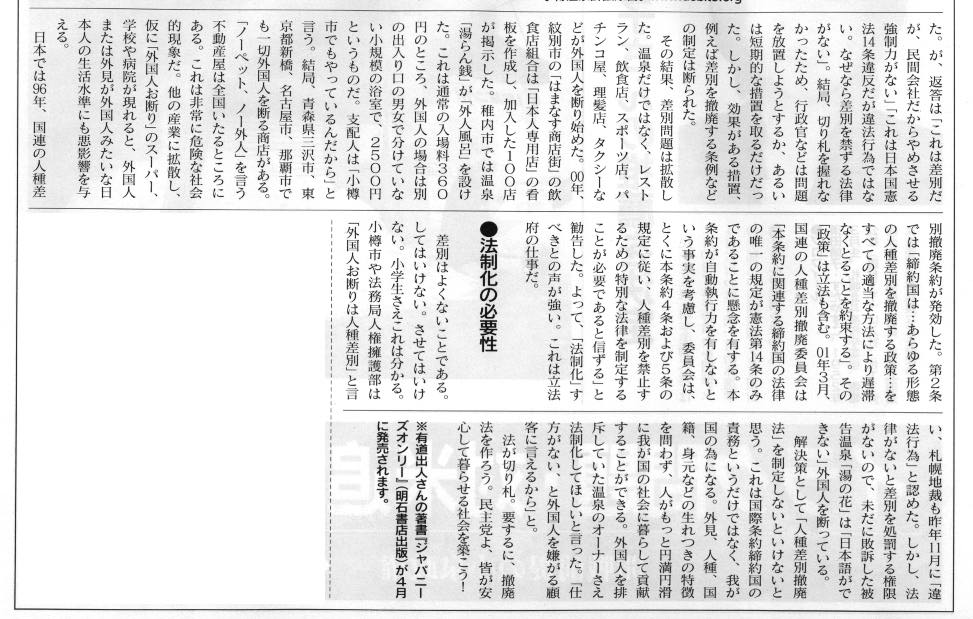 た。が、返答は「これは差別だ
が、民間会社だからやめさせる
強制力がない」「これは日本国憲
法14条違反だが違法行為ではな
い。なぜなら差別を禁ずる法律
がない」。結局、切り札を握れな
かったため、行政官などは問題
を放置しようとするか、あるい
は短期的な措置を取るだけだっ
た。しかし、効果がある措置、
例えば差別を撤廃する条例など
の制定は断られた。
その結果、差別問題は拡散し
た。温泉だけではなく、レスト
ラン、飲食店、スポーツ店、パ
チンコ屋、理髪店、タクシーな
どが外国人を断り始めた。00年、
紋別市の「はまなす商店街」の飲
食店組合は「日本人専用店」の看
板を作成し、加入した100店
が掲示した。稚内市では温泉
「湯らん銭」が「外人風呂」を設け
た。これは通常の入場料360
円のところ、外国人の場合は別
の出入り口の男女で分けていな
い小規模の浴室で、2500円
というものだ。支配人は「小樽
市でもやっているんだから」と
言う。結局、青森県三沢市、東
京都新橋、名古屋市、那覇市で
も一切外国人を断る商店がある。
「ノーペット、ノー外人」を言う
不動産屋は全国いたるところに
ある。これは非常に危険な社会
的現象だ。他の産業に拡散し、
仮に「外国人お断り」のスーパー、
学校や病院が現れると、外国人
または外見が外国人みたいな日
本人の生活水準にも悪影響を与
える。
日本では96年、国連の人種差
別撤廃条約が発効した。第2条
では「締約国は…あらゆる形態
の人種差別を撤廃する政策…を
すべての適当な方法により遅滞
なくとることを約束する」。その
「政策」は立法も含む。01年3月、
国連の人種差別撤廃委員会は
「本条約に関連する締約国の法律
の唯一の規定が憲法第14条のみ
であることに懸念を有する。本
条約が自動執行力を有しないと
いう事実を考慮し、委員会は、
とくに本条約4条および5条の
規定に従い、人種差別を禁止す
るための特別な法律を制定する
ことが必要であると信ずる」と
勧告した。よって、「法制化」す
べきとの声が強い。これは立法
府の仕事だ。
●法制化の必要性
差別はよくないことである。
してはいけない。させてはいけ
ない。小学生さえこれは分かる。
小樽市や法務局人権擁護部は
「外国人お断りは人種差別」と言
い、札幌地裁も昨年11月に「違
法行為」と認めた。しかし、法
律がないと差別を処罰する権限
がないので、未だに敗訴した被
告温泉「湯の花」は「日本語がで
きない」外国人を断っている。
解決策として「人種差別撤廃
法」を制定しないといけないと
思う。これは国際条約締約国の
責務というだけではなく、我が
国の為になる。外見、人種、国
籍、身元などの生れつきの特徴
を問わず、人がもっと円満円滑
に我が国の社会に暮らして貢献
することができる。外国人を排
斥していた温泉のオーナーさえ
法制化してほしいと言った。「仕
方がない、と外国人を嫌がる顧
客に言えるから」と。
法が切り札。要するに、撤廃
法を作ろう。民主党よ、皆が安
心して暮らせる社会を築こう!
※有道出人さんの著書『ジャパニー
ズオンリー』（明石書店出版）が4月
に発売されます。